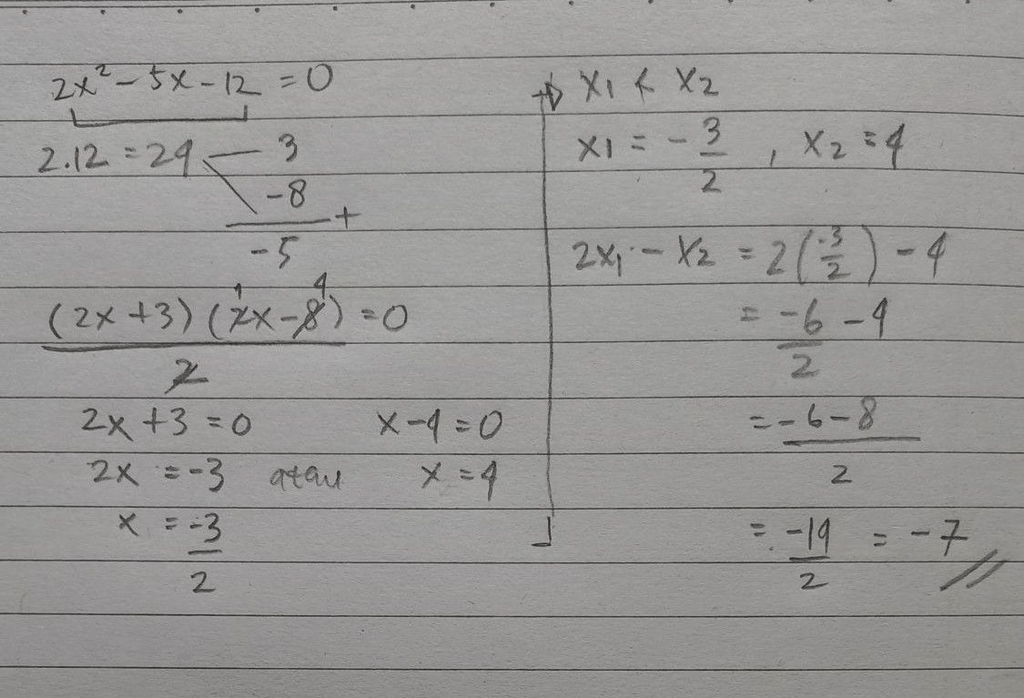 2x² - 5x - 12 = 0
2.12 = 24 3
-8
+
-5
(2x + 3) (2x - 8) = 0
1 4
2
2x + 3 = 0 x - 4 = 0
2x = -3 atau x = 4
x = -3/2
x1 < x2
x1 = -3/2 , x2 = 4
2x1 - x2 = 2(-3/2) - 4
= -6/2 - 4
= -6-8/2
= -14/2 = -7 //